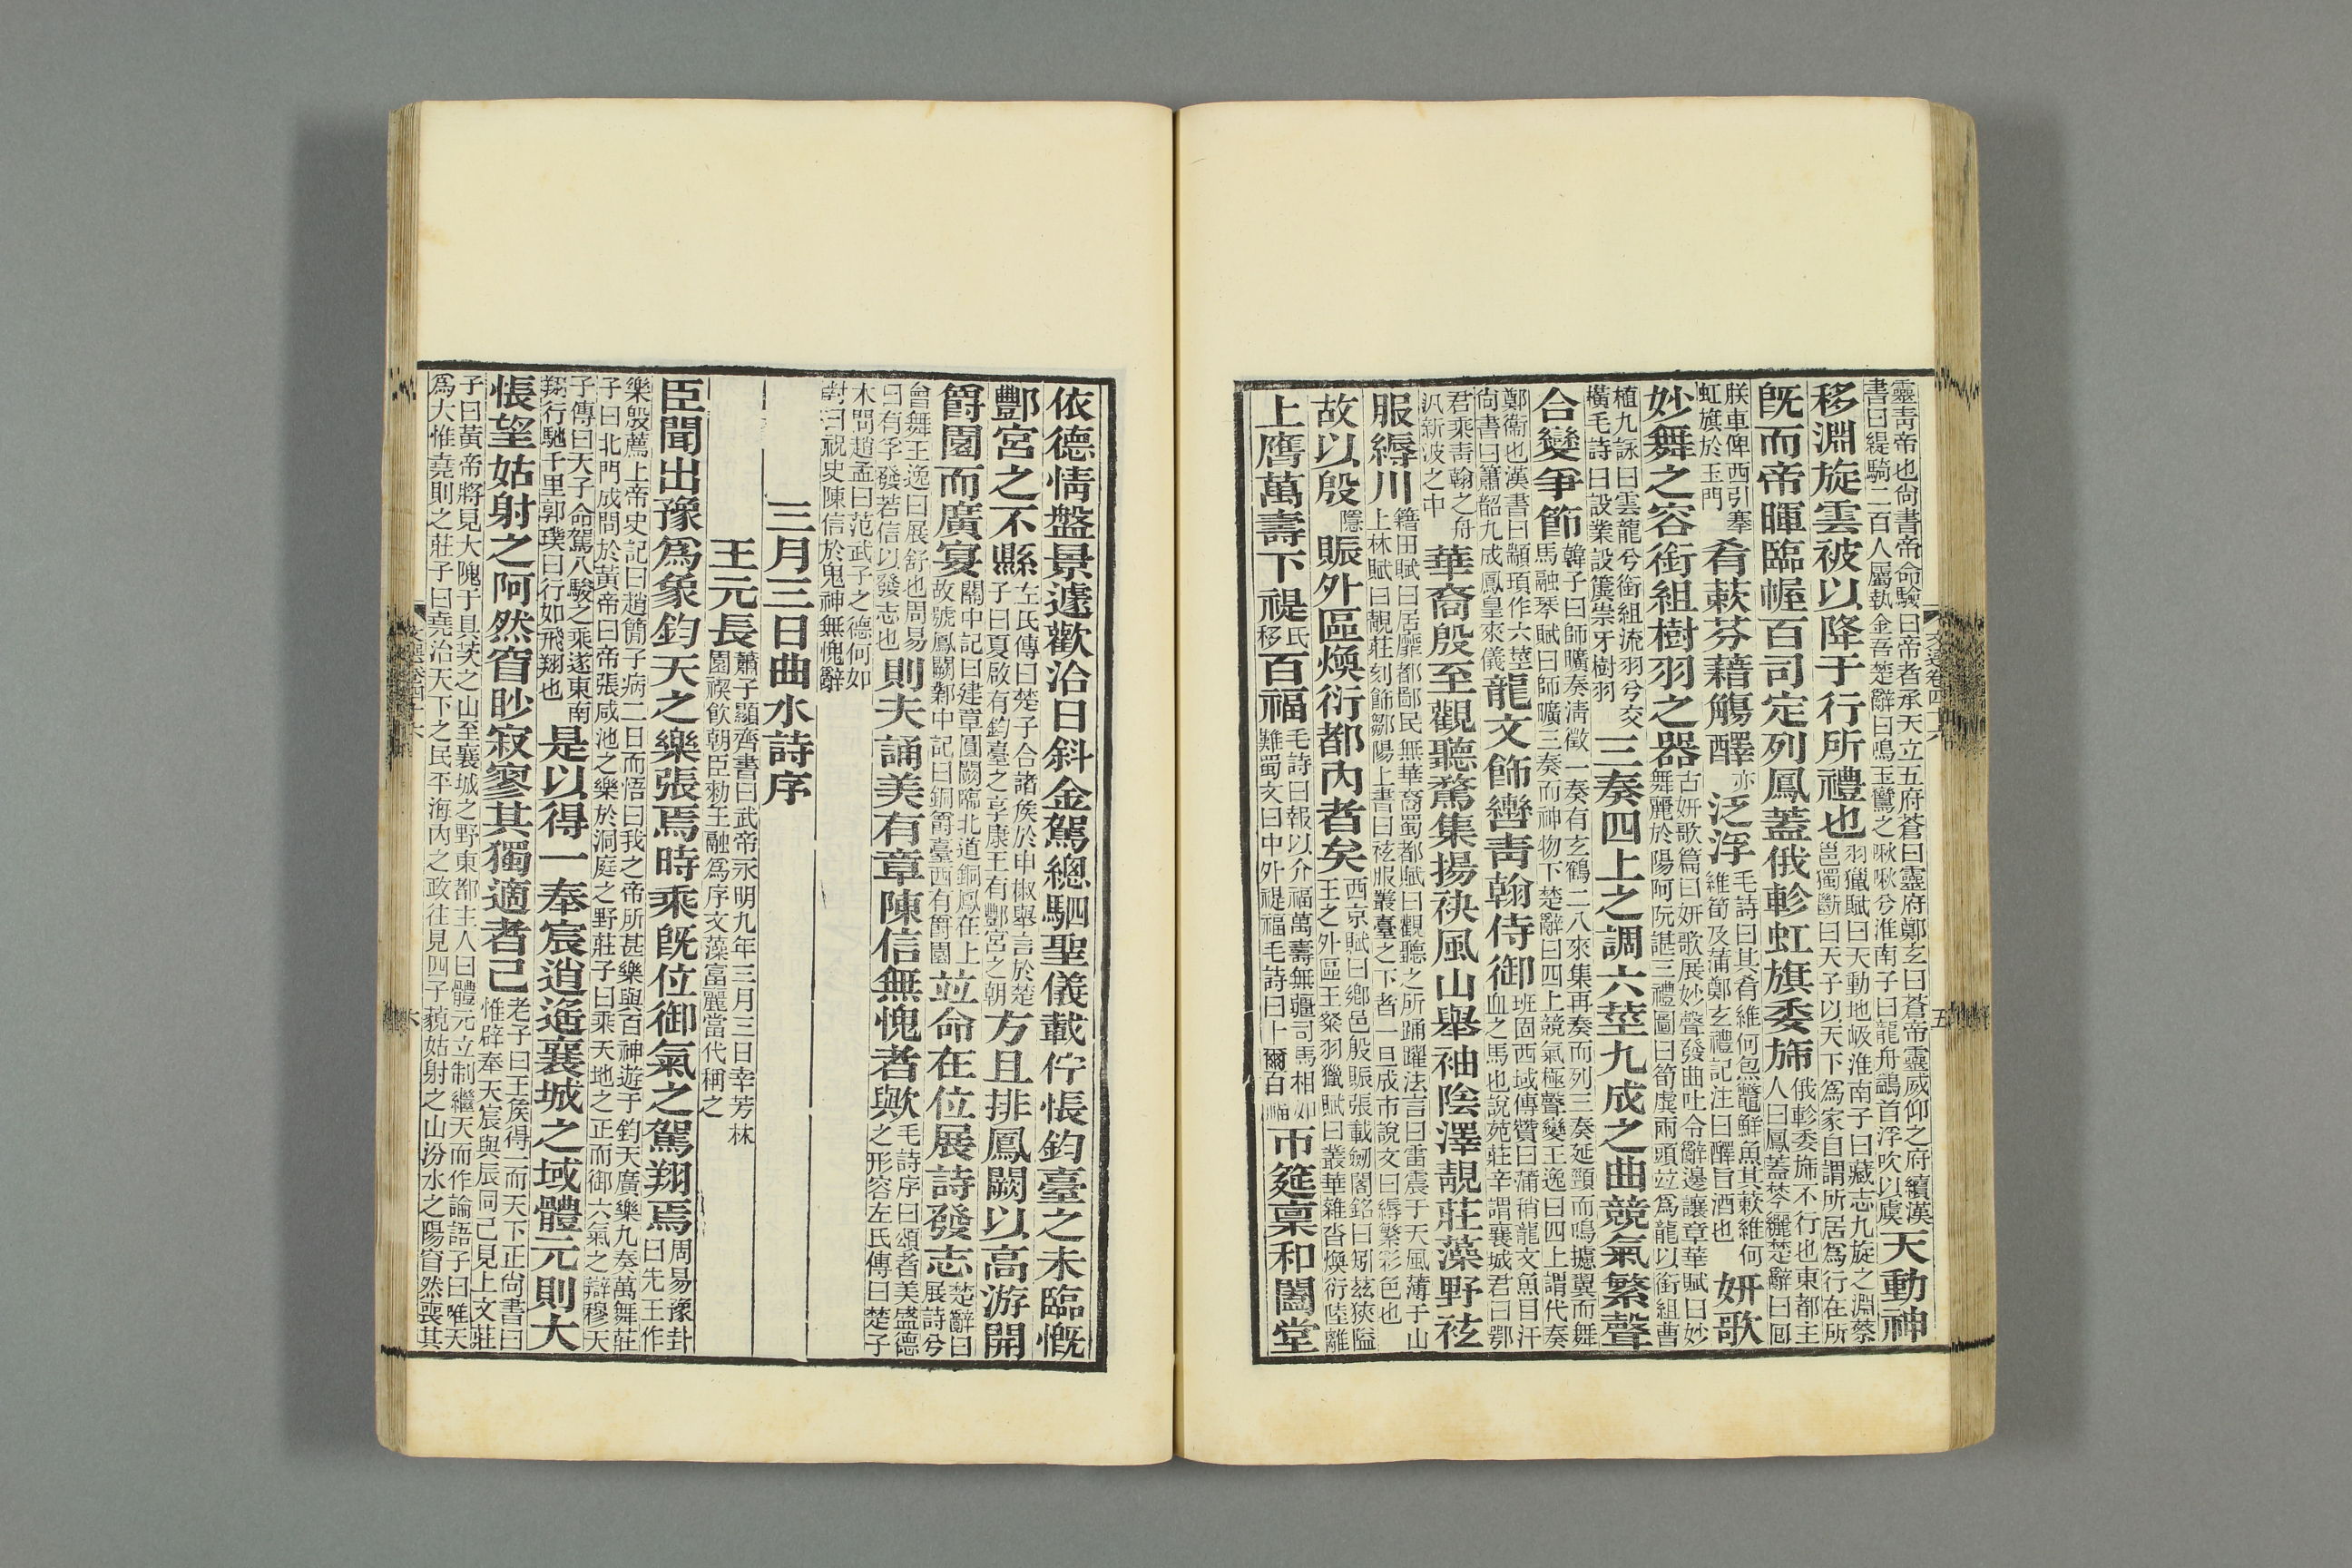 靈靑帝也尙書帝命驗曰帝者承天立五府蒼曰靈府鄭玄曰蒼帝靈威仰之府續漢
書曰緹騎二百人屬執金吾楚辭曰鳴玉鸞之啾啾兮淮南子曰龍舟鷁首浮吹以虞
天動神
移淵旋雲被以降于行所禮也
羽獵賦曰天動地岋淮南子曰藏志九旋之淵蔡
邕獨斷曰天子以天下爲家自謂所居爲行在所
旣而帝暉臨幄百司定列鳳蓋俄軫虹旗委旆
俄軫委旆不行也東都主
人曰鳳蓋棽纚楚辭曰囘
朕車俾西引搴
虹旗於玉門
肴蔌芬藉觴醳
亦
泛浮
毛詩曰其肴維何炰鼈鮮魚其蔌維何
維筍及蒲鄭玄禮記注曰醳旨酒也
姸歌
妙舞之容銜組樹羽之器
古姸歌篇曰姸歌展妙聲發曲吐令辭邊讓章華賦曰妙
舞麗於陽阿阮諶三禮圖曰筍虡兩頭竝爲龍以銜組曹
植九詠曰雲龍兮銜組流羽兮交
橫毛詩曰設業設簴崇牙樹羽
三奏四上之調六莖九成之曲競氣繁聲
合變爭節
韓子曰師曠奏淸徵一奏有玄鶴二八來集再奏而列三奏延頸而鳴攄翼而舞
馬融琴賦曰師曠三奏而神物下楚辭曰四上競氣極聲變王逸曰四上謂代奏
鄭衞也漢書曰顓頊作六莖
尙書曰簫韶九成鳳皇來儀
龍文飾轡靑翰侍御
班固西域傳贊曰蒲梢龍文魚目汗
血之馬也說苑莊辛謂襄城君曰鄂
君乘靑翰之舟
汎新波之中
華裔殷至觀聽騖集揚袂風山舉袖陰澤靚莊藻野袨
服縟川
籍田賦曰居靡都鄙民無華裔蜀都賦曰觀聽之所踊躍法言曰雷震于天風薄于山
上林賦曰靚莊刻飾鄒陽上書曰袨服叢臺之下者一旦成市說文曰縟繁彩色也
故以殷
隱
賑外區煥衍都內者矣
西京賦曰鄕邑殷賑張載劒閣銘曰矧玆狹隘
王之外區王粲羽獵賦曰叢華雜沓煥衍陸離
上膺萬壽下禔
氏
移
百福
毛詩曰報以介福萬壽無疆司馬相如
難蜀文曰中外禔福毛詩曰卜爾百福
帀筵稟和闔堂
依德情盤景遽歡洽日斜金駕總駟聖儀載佇悵鈞臺之未臨慨
酆宮之不縣
左氏傳曰楚子合諸侯於申椒舉言於楚
子曰夏啟有鈞臺之享康王有酆宮之朝
方且排鳳闕以高游開
爵園而廣宴
關中記曰建章圓闕臨北道銅鳳在上
故號鳳闕鄴中記曰銅爵臺西有爵園
竝命在位展詩發志
楚辭曰
展詩兮
會舞王逸曰展舒也周易
曰有孚發若信以發志也
則夫誦美有章陳信無愧者歟
毛詩序曰頌者美盛德
之形容左氏傳曰楚子
木問趙孟曰范武子之德何如
對曰祝史陳信於鬼神無愧辭
三月三日曲水詩序
王元長
蕭子顯齊書曰武帝永明九年三月三日幸芳林
園禊飮朝臣勑王融爲序文藻富麗當代稱之
臣聞出豫爲象鈞天之樂張焉時乘旣位御氣之駕翔焉
周易豫卦
曰先王作
樂殷薦上帝史記曰趙簡子病二日而悟曰我之帝所甚樂與百神遊于鈞天廣樂九奏萬舞莊
子曰北門成問於黃帝曰帝張咸池之樂於洞庭之野莊子曰乘天地之正而御六氣之辯穆天
子傳曰天子命駕八駿之乘遂東南
翔行馳千里郭璞曰行如飛翔也
是以得一奉宸逍遙襄城之域體元則大
悵望姑射之阿然窅眇寂寥其獨適者已
老子曰王侯得一而天下正尙書曰
惟辟奉天宸與辰同已見上文莊
子曰黃帝將見大隗于具茨之山至襄城之野東都主人曰體元立制繼天而作論語子曰唯天
爲大惟堯則之莊子曰堯治天下之民平海內之政往見四子藐姑射之山汾水之陽窅然喪其
文選卷四十六
六
五